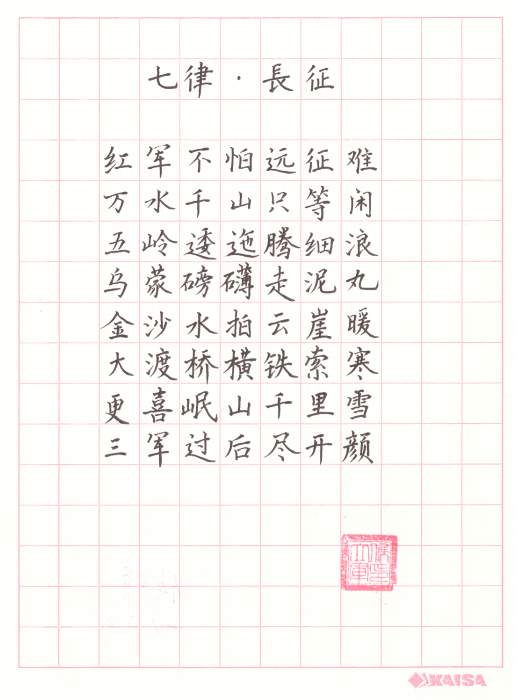 七律·長征
红军不怕远征难
万水千山只等闲
五岭逶迤腾细浪
乌蒙磅礴走泥丸
金沙水拍云崖暖
大渡桥横铁索寒
更喜岷山千里雪
三军过后尽开颜
KAISA